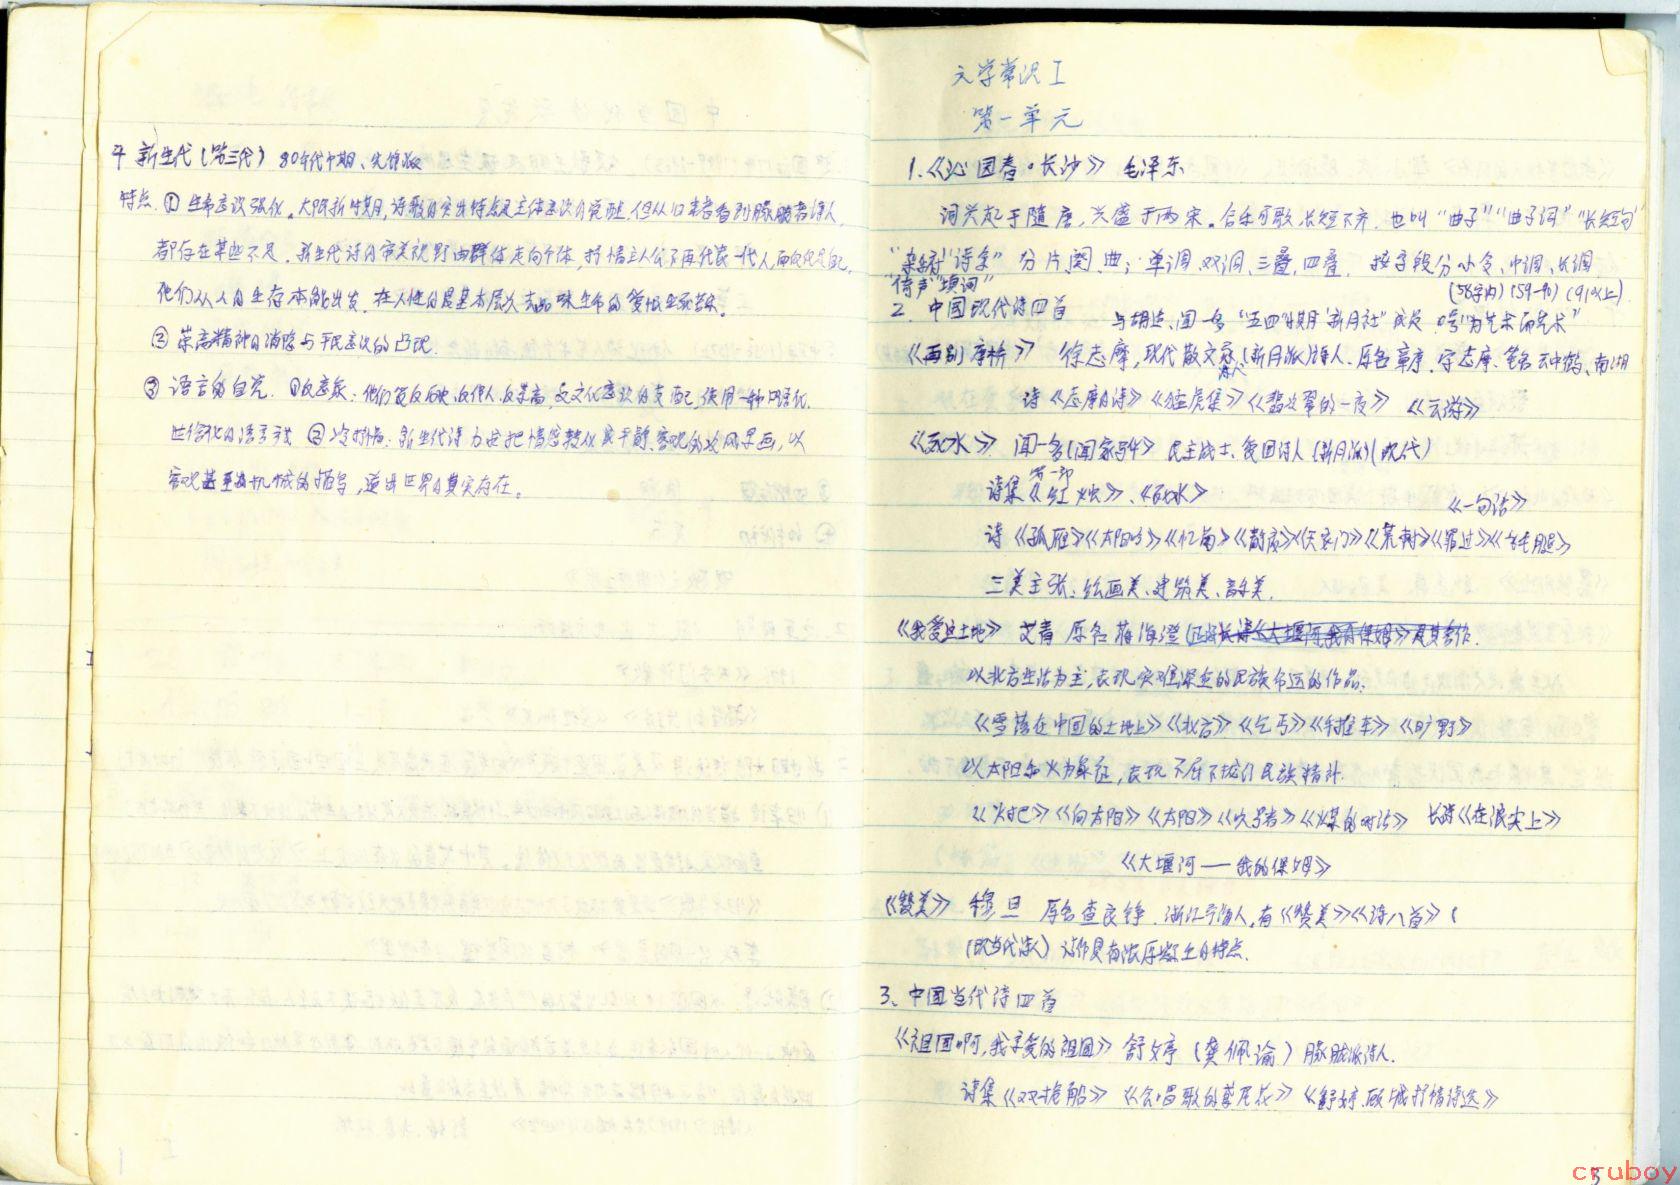 4 新生代(第三代) 80年代中期、先锋派
特点 ① 生命意识强化。大陆新时期,诗歌的突出特点是主体意识的觉醒,但从归来者看到朦胧者诗人,
都存在某些不足。新生代诗的审美视野由群体走向个体,抒情主人公不再代表一代人,而仅仅是自己,
他们从人的生存本能出发,在人性的最基本层次去品味生命的
② 崇高精神的消隐与平民意识的凸现.
③ 语言的自觉. ①反意象:他们反文化意识的支配,使用一种口语化.
世俗化的语言方式 ②冷抒情:新生代诗力求把情感转化成平静、客观的风景画,以
客观甚至机械的描写,还世界的真实存在。
文学常识 I
第一单元
1.《沁园春·长沙》 毛泽东
词兴起于隋唐,兴盛于两宋。合乐可歌,长短不齐.也叫"曲子""曲子词""长短句"
"乐府""诗余" 分片、阕.单调、双调、三叠、四叠. 按字数分小令、中调、长调.
"倚声""填词" (58字内)(59-90)(91以上).
2. 中国现代诗四首 与胡适、闻一多"五四"时期"新月社"成员 口号"为艺术而艺术"
《再别康桥》 徐志摩,现代散文家(新月派)诗人.原名章垿.字志摩.笔名云中鹤、南湖
诗人
诗《志摩的诗》《猛虎集》《翡冷翠的一夜》 《云游》
《死水》 闻一多(闻家骅) 民主战士、爱国诗人(新月派)(现代)
第一部
诗集《红烛》、《死水》 《一句话》
诗《孤雁》《太阳吟》《忆菊》《荒村》《罪过》
三美主张:绘画美、建筑美、音乐美.
《我爱这土地》 艾青 原名蒋海澄 成长诗《大堰河,我的保姆》是其
以北方生活为主,表现灾难深重的民族命运的作品.
《雪落在中国的土地上》《北方》《乞丐》《手推车》《旷野》
以太阳和火为象征,表现不屈不挠的民族精神.
《火把》《向太阳》《太阳》《吹号者》《煤的对话》 长诗《在浪尖上》
《大堰河——我的保姆》
《赞美》 穆旦 原名查良铮.浙江宁海人,有《赞美》《诗八首》(
(现当代诗人) 诗作具有浓厚凝重的特点.
3、中国当代诗四首
《祖国啊,我亲爱的祖国》 舒婷 (龚佩瑜) 朦胧派诗人.
诗集《双桅船》《会唱歌的鸢尾花》《舒婷、顾城抒情诗选》
cruboy